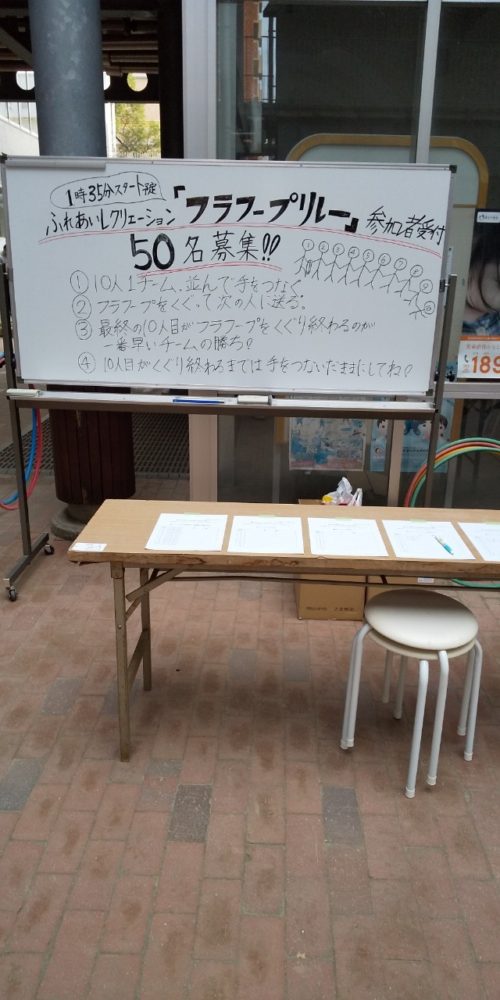 1時35分スタート予定
ふれあいレクリエーション「フラフープリレー」参加者受付
50名募集!!
① 10人1チーム、並んで手をつなぐ
② フラフープをくぐって次の人に送る。
③ 最終の10人目がフラフープをくぐり終わるのが
一番早いチームの勝ち!
④ 10人目がくぐり終わるまでは手をつないだままにしてね!
189